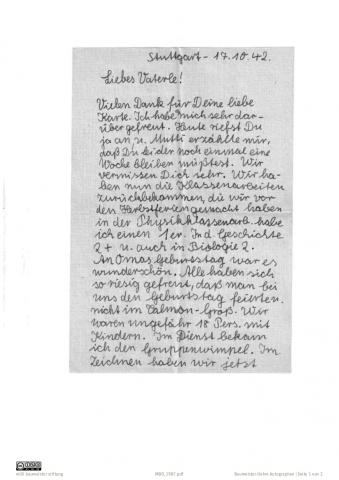 Stuttgart - 17.10.42.
Liebes Vaterle!
Vielen Dank für Deine liebe
Karte. Ich habe mich sehr dar-
über gefreut. Heute riefst Du
ja an u. Mutti erzählte mir,
daß Du leider noch einmal eine
Woche bleiben müßtest. Wir
vermissen Dich sehr. Wir ha-
ben nun die Klassenarbeiten
zurückbekommen, die wir vor
den Herbstferien gemacht haben
in der Physikklassenarb. habe
ich einen 1er. In d. Geschichte
2+ u. auch in Biologie 2.
An Omas Geburtstag war es
wunderschön. Alle haben sich
so riesig gefreut, daß man bei
uns den Geburtstag feierten.
nicht im Calmon-Größ. Wir
waren ungefähr 18 Pers. mit
Kindern. Im Dienst bekam
ich den Gruppenwimpel. Im
Zeichnen haben wir jetzt
willi baumeister stiftung
Seite 1 von 2